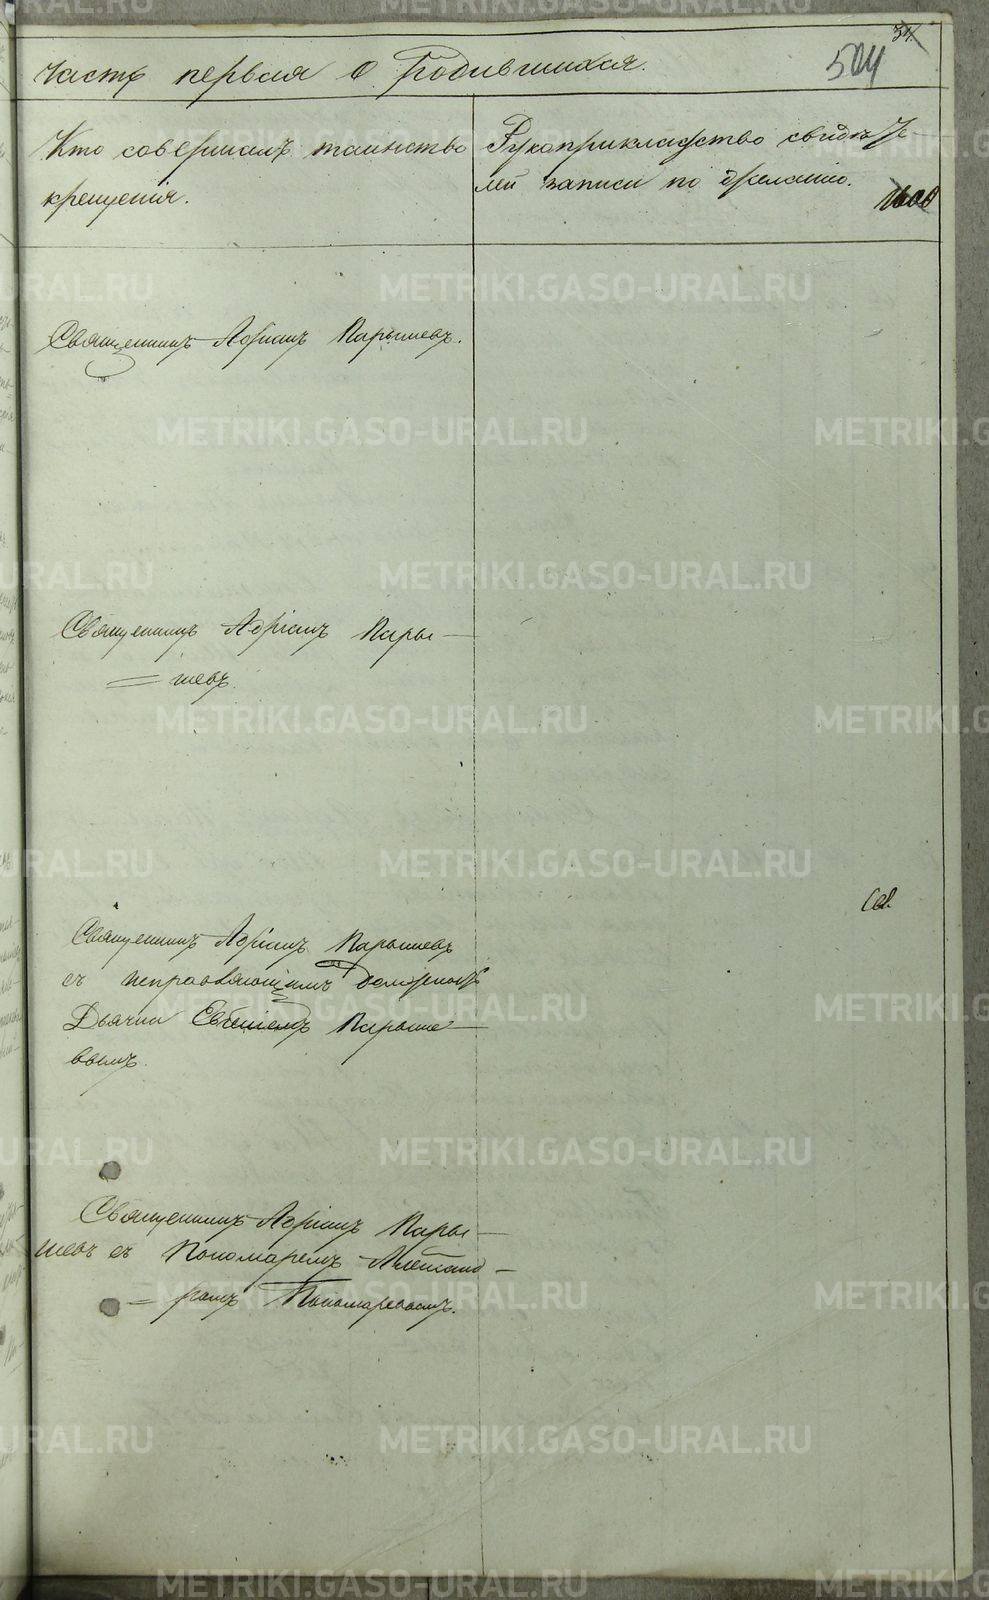 504
Часть первая о Родившихся.
Кто совершалъ таинство
крещенія.
Рукоприкладство свидѣте
лей записи по желанію.
Священникъ Адріанъ Парышевъ.
Священникъ Адріанъ Пары-
=шевъ.
Священникъ Адріанъ Парышевъ
съ исправляющимъ должность
Дьячка Парыше-
вымъ.
Священникъ Адріанъ Пары-
шевъ съ Пономаремъ Александ-
=ромъ Пономаревымъ.
METRIKI.GASO-URAL.RU